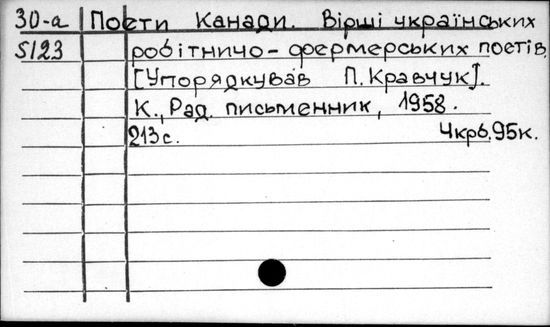 30-а Поети Канади. Вірші українських
5123 робітничо-фермерських поетів.
[Упорядкував П. Кравчук].
К., Рад. письменник, 1958.
213 с. 4крб.95к.